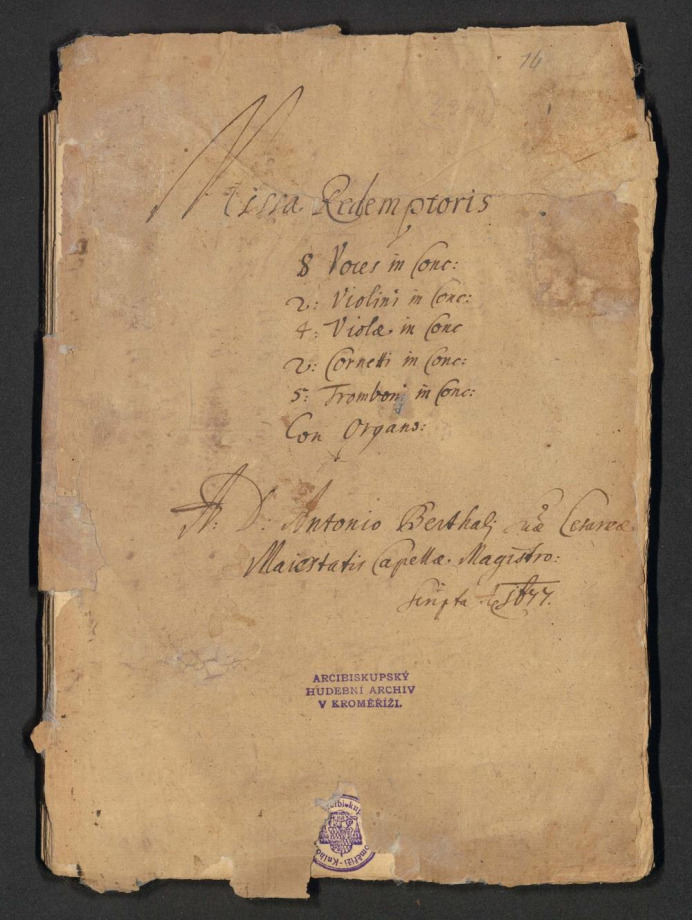 16
Missa Redemptoris
8 Voces in Conc:
2: Violini in Conc:
4: Violæ in Conc
2: Cornetti in Conc:
5: Tromboni in Conc:
Con Organo:
A: D: Antonio Berthalj Suæ Cesareæ
Maiestatis Capellæ Magistro:
Scripta 1677.
ARCIBISKUPSKÝ
HUDEBNÍ ARCHIV
V KROMĚŘÍŽI.